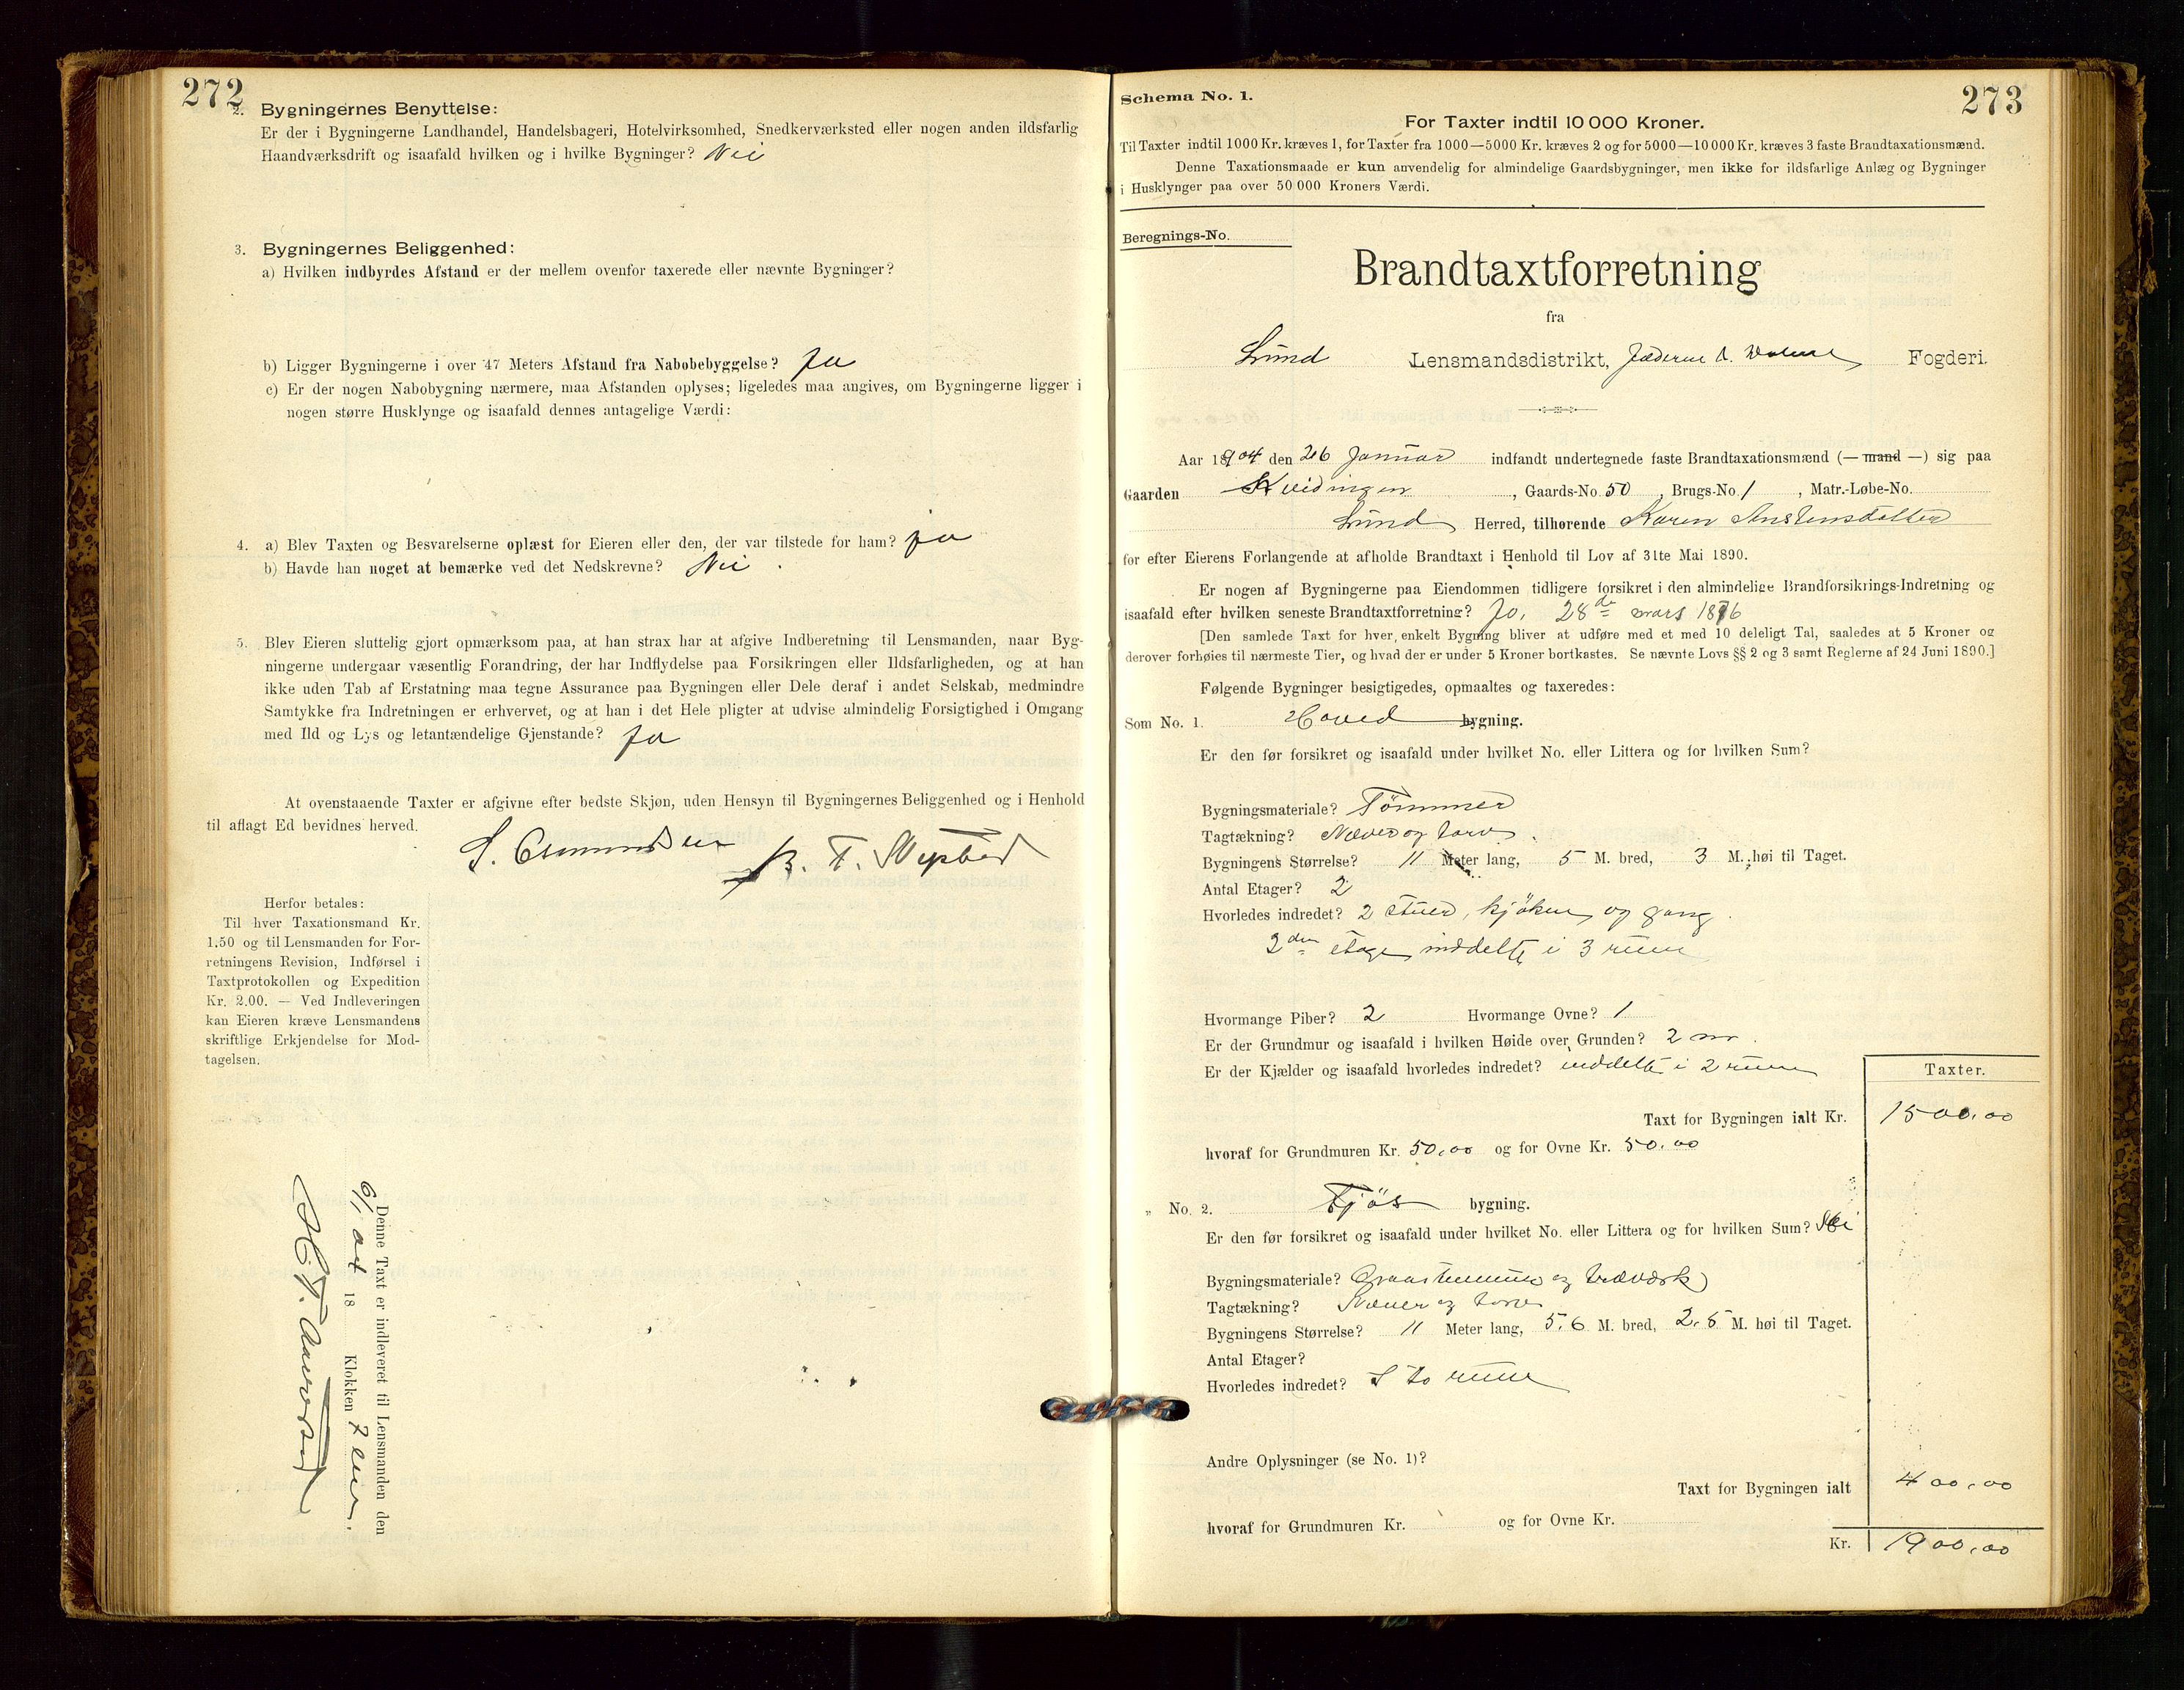 272
2. Bygningernes Benyttelse:
Er der i Bygningerne Landhandel, Handelsbageri, Hotelvirksomhed, Snedkerværksted eller nogen anden ildsfarlig
Haandværksdrift og isaafald hvilken og i hvilke Bygninger? Nei
3. Bygningernes Beliggenhed:
a) Hvilken indbyrdes Afstand er der mellem ovenfor taxerede eller nævnte Bygninger?
b) Ligger Bygningerne i over 47 Meters Afstand fra Nabobebyggelse? Ja
c) Er der nogen Nabobygning nærmere, maa Afstanden oplyses; ligeledes maa angives, om Bygningerne ligger i
nogen større Husklynge og isaafald dennes antagelige Værdi:
4. a) Blev Taxten og Besvarelserne oplæst for Eieren eller den, der var tilstede for ham? ja
b) Havde han noget at bemærke ved det Nedskrevne? Nei
5. Blev Eieren sluttelig gjort opmærksom paa, at han strax har at afgive Indberetning til Lensmanden, naar Byg-
ningerne undergaar væsentlig Forandring, der har Indflydelse paa Forsikringen eller Ildsfarligheden, og at han
ikke uden Tab af Erstatning maa tegne Assurance paa Bygningen eller Dele deraf i andet Selskab, medmindre
Samtykke fra Indretningen er erhvervet, og at han i det Hele pligter at udvise almindelig Forsigtighed i Omgang
med Ild og Lys og letantændelige Gjenstande? ja
At ovenstaaende Taxter er afgivne efter bedste Skjøn, uden Hensyn til Bygningernes Beliggenhed og i Henhold
til aflagt Ed bevidnes herved.
Herfor betales:
Til hver Taxationsmand Kr.
1.50 og til Lensmanden for For-
retningens Revision, Indførsel i
Taxtprotokollen og Expedition
Kr. 2.00. — Ved Indleveringen
kan Eieren kræve Lensmandens
skriftlige Erkjendelse for Mod-
tagelsen.
Denne Taxt er indleveret til Lensmanden den
04 18 Klokken 7
273
Schema No. 1.
For Taxter indtil 10 000 Kroner.
Til Taxter indtil 1000 Kr. kræves 1, for Taxter fra 1000—5000 Kr. kræves 2 og for 5000—10 000 Kr. kræves 3 faste Brandtaxationsmænd.
Denne Taxationsmaade er kun anvendelig for almindelige Gaardsbygninger, men ikke for ildsfarlige Anlæg og Bygninger
i Husklynger paa over 50 000 Kroners Værdi.
Beregnings-No.
Brandtaxtforretning
fra
Lund Lensmandsdistrikt, Jæderen & Dalene Fogderi.
Aar 1904 den 26 Januar indfandt undertegnede faste Brandtaxationsmænd (— mand —) sig paa
Gaarden Kvidingen, Gaards-No. 50, Brugs-No. 1, Matr.-Løbe-No.
Lund Herred, tilhørende Karen Anstensdatter
for efter Eierens Forlangende at afholde Brandtaxt i Henhold til Lov af 31te Mai 1890.
Er nogen af Bygningerne paa Eiendommen tidligere forsikret i den almindelige Brandforsikrings-Indretning og
isaafald efter hvilken seneste Brandtaxtforretning? Ja, 28de mars 1876
[Den samlede Taxt for hver enkelt Bygning bliver at udføre med et med 10 deleligt Tal, saaledes at 5 Kroner og
derover forhøies til nærmeste Tier, og hvad der er under 5 Kroner bortkastes. Se nævnte Lovs §§ 2 og 3 samt Reglerne af 24 Juni 1890.]
Følgende Bygninger besigtigedes, opmaaltes og taxeredes:
Som No. 1. Hoved bygning.
Er den før forsikret og isaafald under hvilket No. eller Littera og for hvilken Sum?
Bygningsmateriale? Tömmer
Tagtækning? Næver og torv
Bygningens Størrelse? 11 Meter lang, 5 M. bred, 3 M. høi til Taget.
Antal Etager? 2
Hvorledes indredet? 2 stuer, kjöken og gang.
2den etage inddelt i 3 rum
Hvormange Piber? 2 Hvormange Ovne? 1
Er der Grundmur og isaafald i hvilken Høide over Grunden? 2 m.
Er der Kjælder og isaafald hvorledes indredet? inddelt i 2 rum
Taxter.
Taxt for Bygningen ialt Kr. 1500.00
hvoraf for Grundmuren Kr. 50.00 og for Ovne Kr. 50.00
" No. 2. Fjös bygning.
Er den før forsikret og isaafald under hvilket No. eller Littera og for hvilken Sum? Nei
Bygningsmateriale? Graastensmur og træværk
Tagtækning? Næver og torv
Bygningens Størrelse? 11 Meter lang, 5.6 M. bred, 2.5 M. høi til Taget.
Antal Etager?
Hvorledes indredet? I to rum
Andre Oplysninger (se No. 1)?
Taxt for Bygningen ialt 400.00
hvoraf for Grundmuren Kr. og for Ovne Kr.
Kr. 1900.00